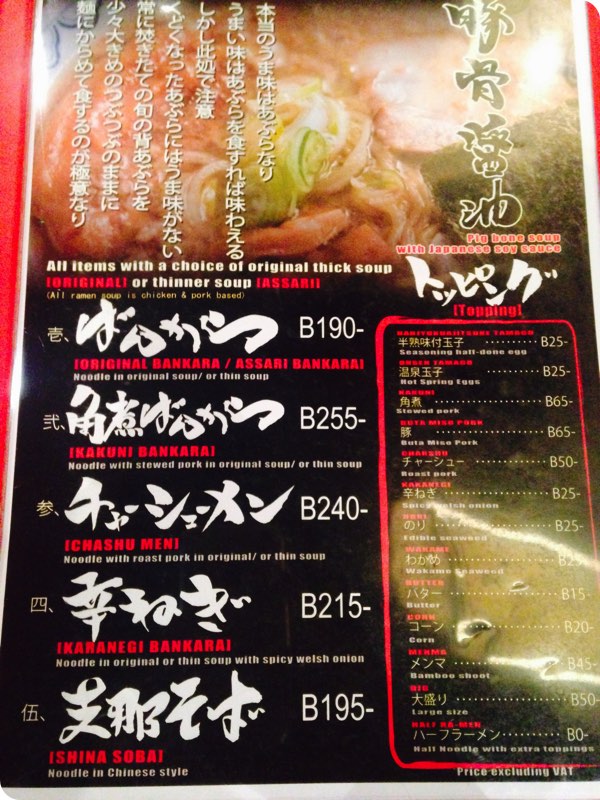 豚骨醤油
Pig bone soup
with Japanese soy sauce
本当のうま味はあぶらなり
うまい味はあぶらを食すれば味わえる
しかし此処で注意
くどくなったあぶらにはうま味がない
常に焚きたての旬の背あぶらを
少々大きめのつぶつぶのままに
麺にからめて食するのが極意なり
All items with a choice of original thick soup
[ORIGINAL] or thinner soup [ASSARI]
(All ramen soup is chicken & pork based)
壱、ばんから B190-
[ORIGINAL BANKARA / ASSARI BANKARA]
Noodle in original soup/ or thin soup
弐、角煮ばんから B255-
[KAKUNI BANKARA]
Noodle with stewed pork in original soup/ or thin soup
参、チャーシューメン B240-
[CHASHU MEN]
Noodle with roast pork in original/ or thin soup
四、辛ねぎ B215-
[KARANEGI BANKARA]
Noodle in original or thin soup with spicy welsh onion
伍、支那そば B195-
[SHINA SOBA]
Noodle in Chinese style
トッピング
[Topping]
半熟味付玉子 ·········· B25-
Seasoning half-done egg
ONSEN TAMAGO
温泉玉子 ·········· B25-
Hot Spring Eggs
KAKUNI
角煮 ·········· B65-
Stewed pork
BUTA MISO PORK
豚 ·········· B65-
Buta Miso Pork
CHASHU
チャーシュー ·········· B50-
Roast pork
KARANEGI
辛ねぎ ·········· B25-
Spicy welsh onion
NORI
のり ·········· B25-
Edible seaweed
WAKAME
わかめ ·········· B25-
Wakame Seaweed
BUTTER
バター ·········· B15-
Butter
CORN
コーン ·········· B20-
Corn
MENMA
メンマ ·········· B45-
Bamboo shoot
BIG
大盛り ·········· B50-
Large size
HALF RA-MEN
ハーフラーメン ·········· B0-
Half Noodle with extra toppings
Price excluding VAT